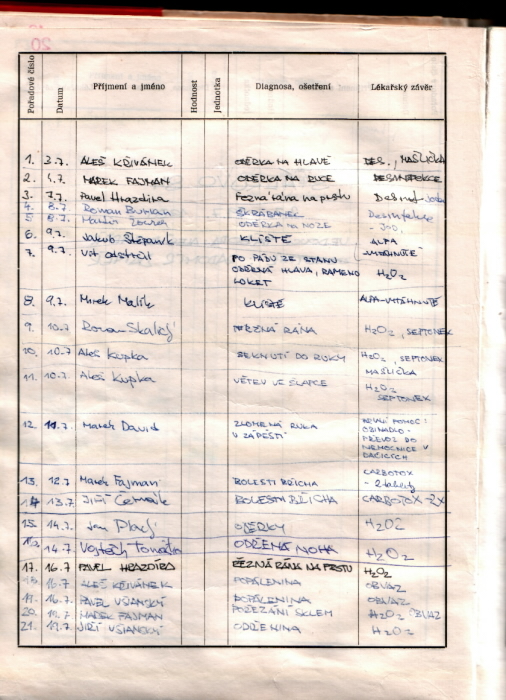 Pořadové číslo Datum Příjmení a jméno Hodnost Jednotka Diagnosa, ošetření Lékařský závěr
1. 3.7. ALEŠ KŘIVÁNEK ODĚRKA NA HLAVĚ DES., MAŠLIČKA
2. 4.7. MAREK FAJMAN ODĚRKA NA RUCE DESINFEKCE
3. 7.7. Pavel Hrazdira Řezná rána na prstu
4. 8.7. Roman ŠKRÁBANEK Desinfekce
5. 8.7. ODĚRKA NA NOZE - JOD,
6. 9.7. Jakub Štěpaník KLÍŠTĚ ALPA
7. 9.7. Vít PO PÁDU ZE STANU -VYTÁHNUTÍ
ODĚRNÁ HLAVA, RAMENO H2O2
LOKET
8. 9.7. Mirek Malík KLÍŠTĚ ALPA-VYTÁHNUTÍ
9. 10.7 Roman Skalický ŘEZNÁ RÁNA H2O2, SEPTONEK
10. 10.7 Aleš Kupka SEKNUTÍ DO RUKY H2O2, SEPTONEK
MAŠLIČKA
11. 10.7. Aleš Kupka VĚTEV VE ŠLAPCE H2O2
SEPTONEK
12. 11.7. Marek David ZLOMENÁ RUKA PRVNÍ POMOC:
V ZÁPĚSTÍ OBINADLO-
PŘEVOZ DO
NEMOCNICE V
DAČICÍCH
13. 12.7 Marek Fajman BOLESTI BŘICHA CARBOTOX
- 2 tablety
14 13.7. Jiří Čermák BOLESTI BŘICHA CARBOTOX -2X
15. 14.7. Jan ODĚRKY H2O2
16. 14.7. Vojtěch ODŘENÁ NOHA H2O2
17. 16.7 PAVEL HRAZDÍRA ŘEZNÁ RÁNA NA PRSTU H2O2
18. 16.7 ALEŠ KŘIVÁNEK POPÁLENINA OBVAZ
19. 16.7. PAVEL VŠIANSKÝ POPÁLENINA OBVAZ
20. MAREK FAJMAN POŘEZÁNÍ SKLEM H2O2 OBVAZ
21. JIŘÍ VŠIANSKÝ ODŘENINA H2O2